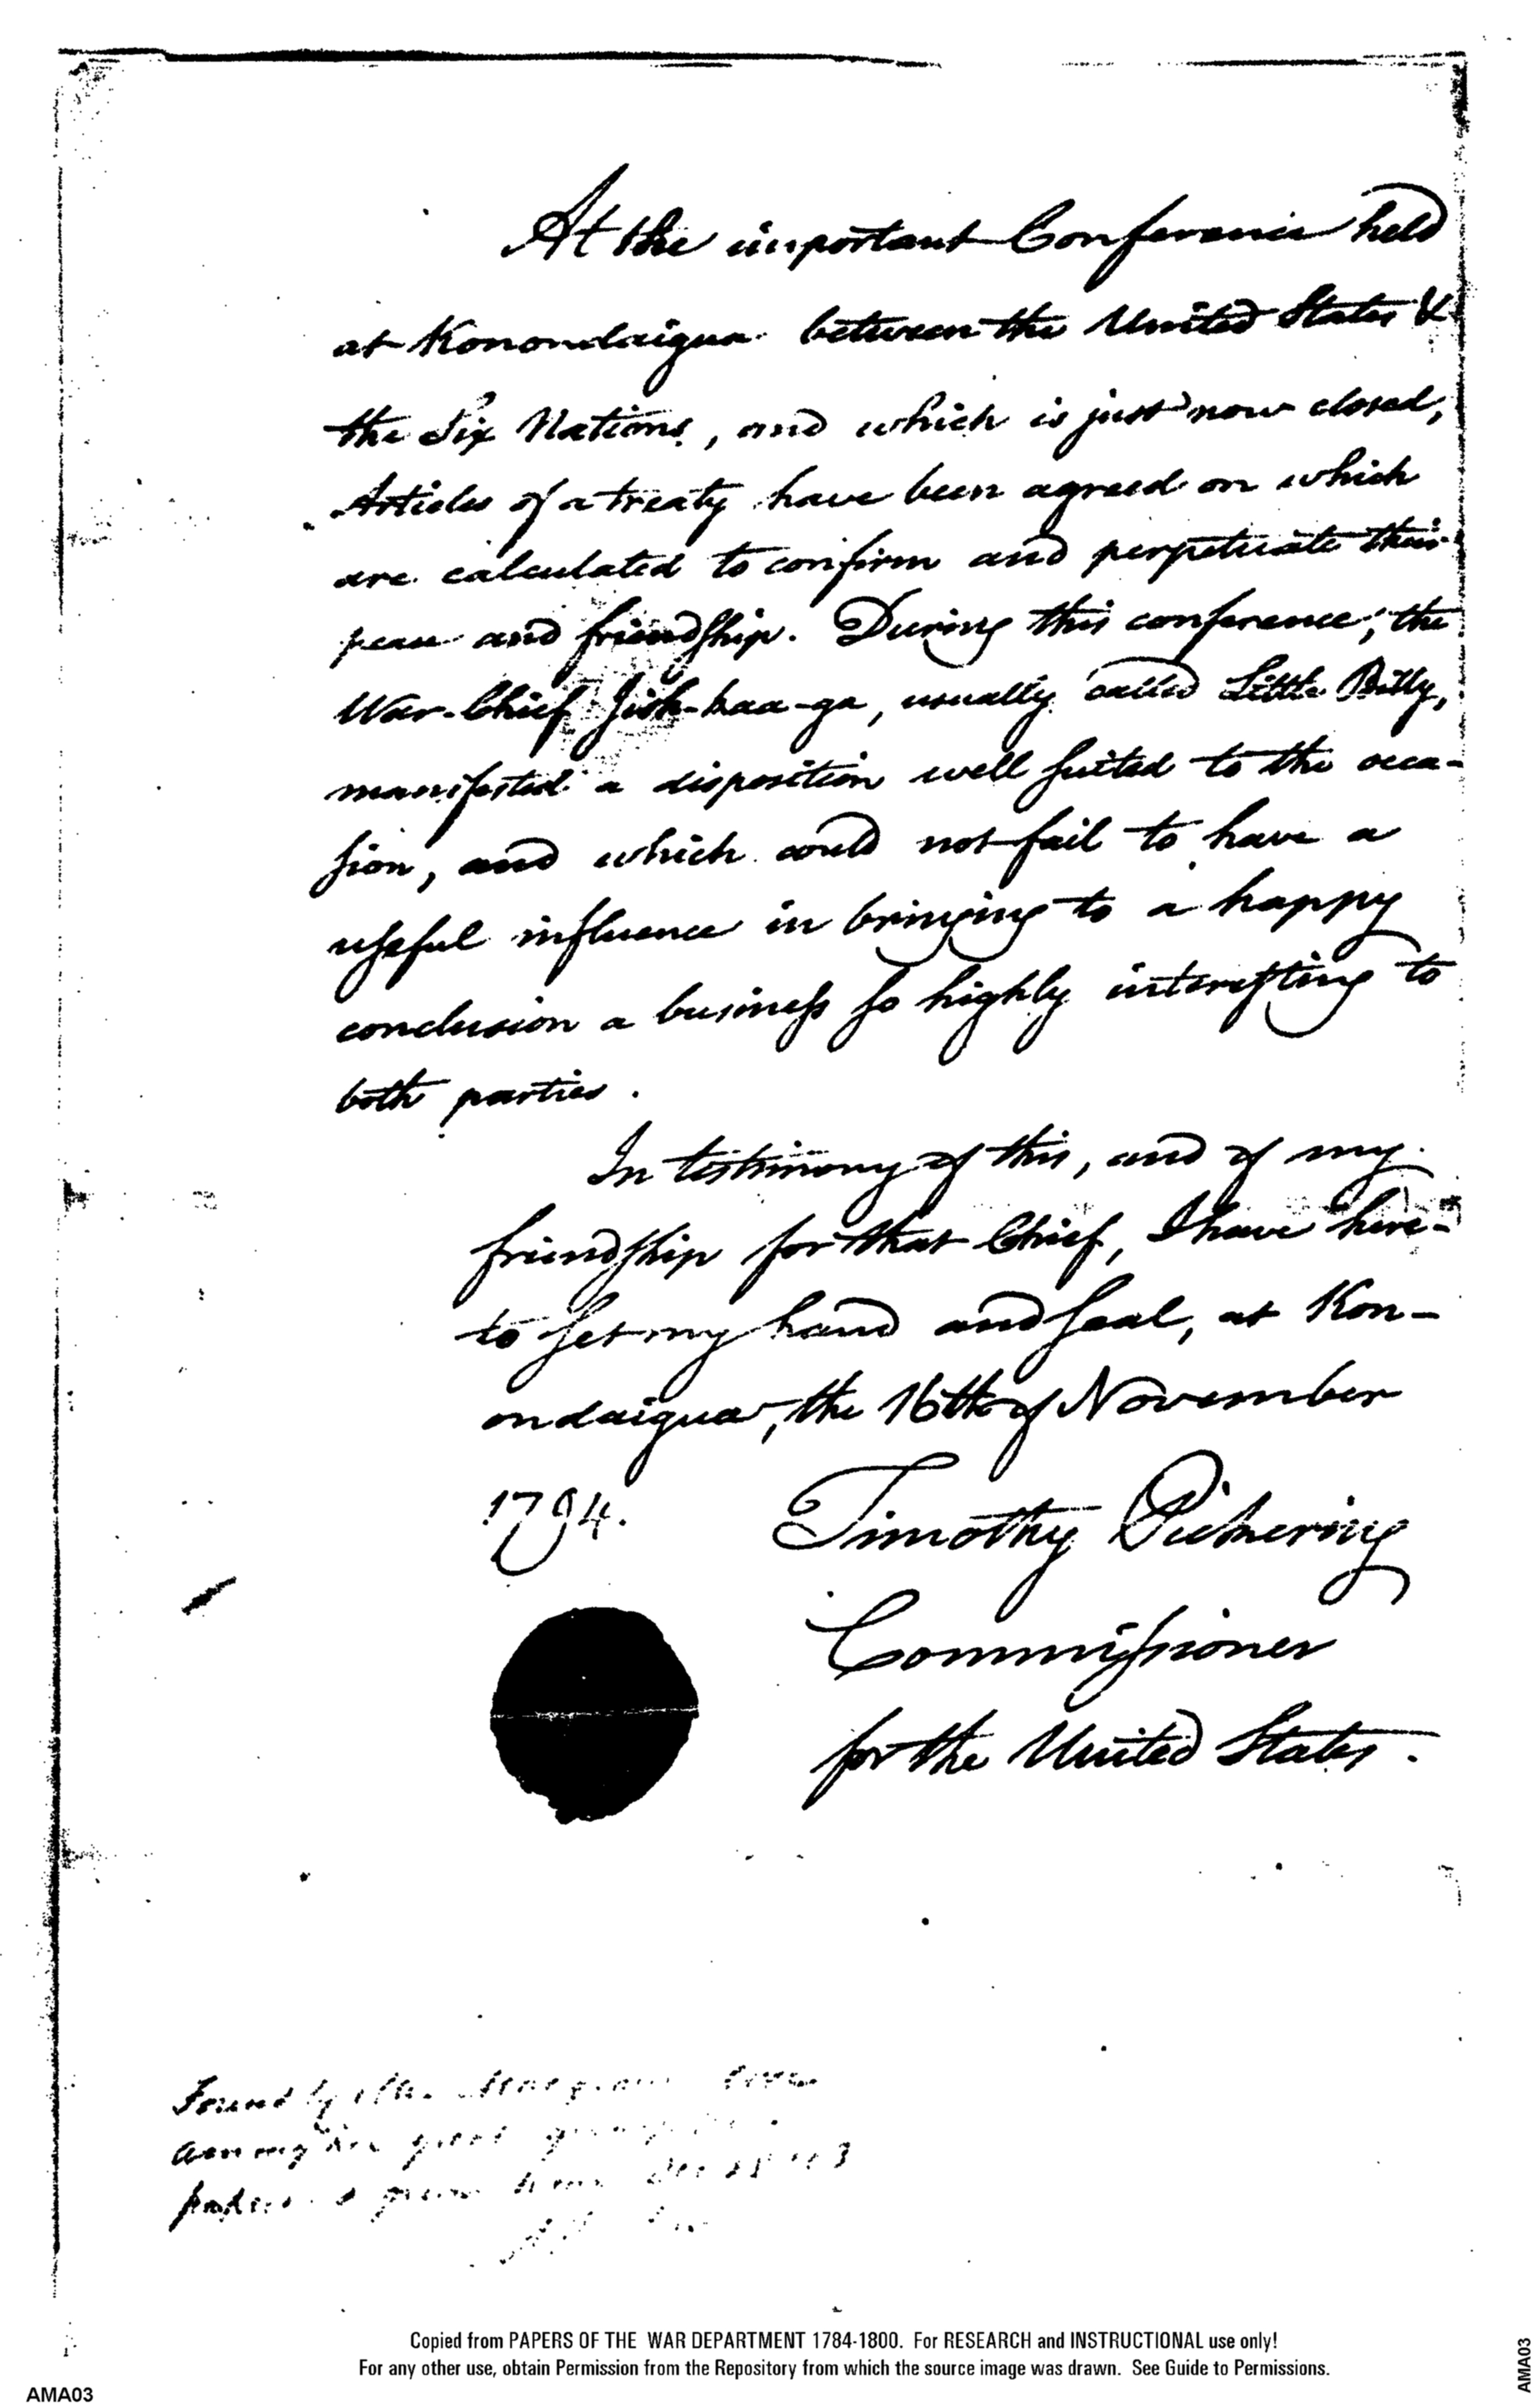 At the important Conference held
at Konondaigua between the United States &
the Six Nations, and which is just now closed,
Articles of a treaty have been agreed on which
are calculated to confirm and perpetuate their
peace and friendship. During this conference, the
War-Chief Jish-kaa-ga, usually called Little Billy,
manifested a disposition well suited to the occa-
sion, and which could not fail to have a
useful influence in bringing to a happy
conclusion a business so highly interesting to
both parties.
In testimony of this, and of my
friendship for that Chief, I have here-
to set my hand and seal, at Kon-
ondaigua, the 16th of November
1794. Timothy Pickering
Commissioner
for the United States.
Found by
among his great
Copied from PAPERS OF THE WAR DEPARTMENT 1784-1800. For RESEARCH and INSTRUCTIONAL use only!
For any other use, obtain Permission from the Repository from which the source image was drawn. See Guide to Permissions.
AMA03
AMA03